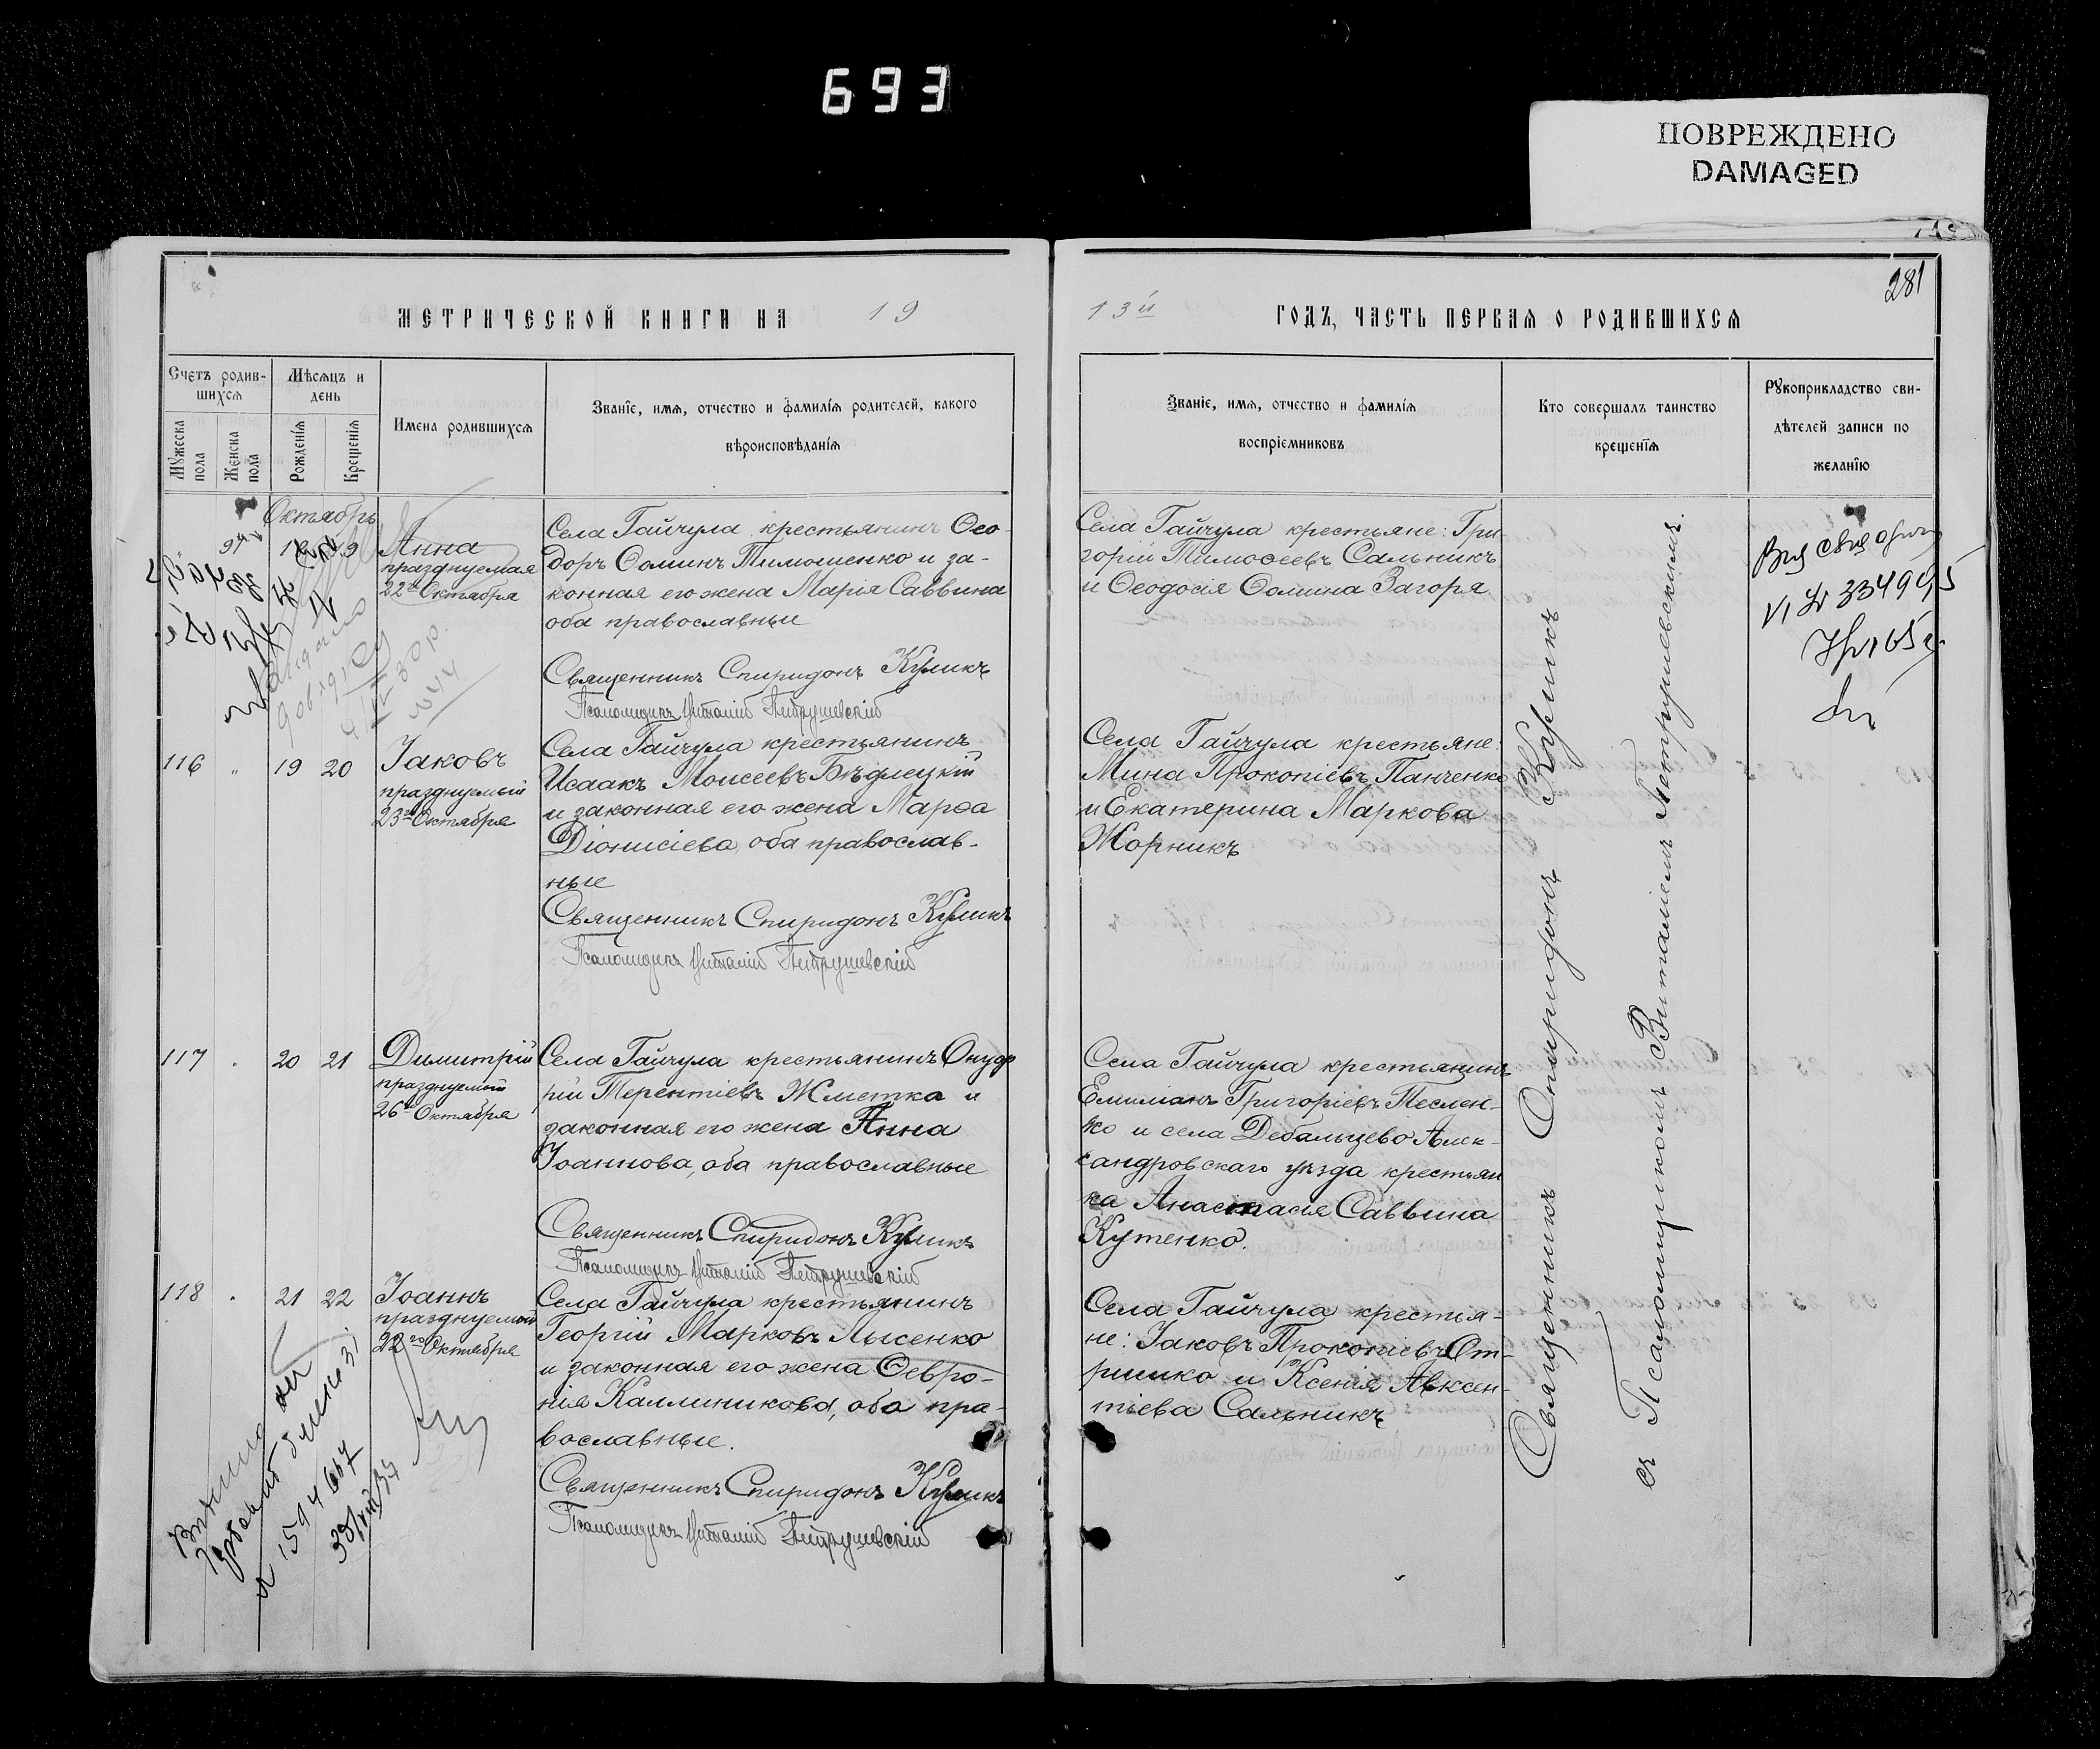 693
ПОВРЕЖДЕНО
DAMAGED
281
МЕТРИЧЕСКОЙ КНИГИ НА 19
13й ГОДЪ, ЧАСТЬ ПЕРВАЯ О РОДИВШИХСЯ
Счетъ родив-
шихся
Мужеска
пола
Женска
пола
Мѣсяцъ и
день
Рожденія
Крещенія
Имена родившихся
Званіе, имя, отчество и фамилія родителей, какого
вѣроисповѣданія
Званіе, имя, отчество и фамилія
воспріемниковъ
Кто совершалъ таинство
крещенія
Рукоприкладство сви-
дѣтелей записи по
желанію
Октябрь
Анна
празднуемая
22го Октября
Села Гайчула крестьянинъ Ѳео-
доръ Ѳоминъ Тимошенко и за-
конная его жена Марія Саввина
оба православные
Священникъ Спиридонъ Куликъ
Псаломщикъ Виталій Петрушевскій
Села Гайчула крестьяне: Гри-
горій Тимоѳеевъ Сальникъ
и Ѳеодосія Ѳомина Загоря
116 " 19 20
Іаковъ
празднуемый
23го Октября
Села Гайчула крестьянинъ
Исаакъ Моисеевъ Бѣдлецкій
и законная его жена Марѳа
Діонисіева, оба православ-
ные
Священникъ Спиридонъ Куликъ
Псаломщикъ Виталій Петрушевскій
Села Гайчула крестьяне:
Мина Прокопіевъ Панченко
и Екатерина Маркова
Жорникъ
117 " 20 21
Димитрій
празднуемый
26го Октября
Села Гайчула крестьянинъ Онуф-
рій Терентіевъ Жметка и
законная его жена Анна
Іоаннова, оба православные
Священникъ Спиридонъ Куликъ
Псаломщикъ Виталій Петрушевскій
Села Гайчула крестьянинъ
Емиліанъ Григоріевъ Теслен-
ко и села Дебальцево Алек-
сандровскаго уѣзда крестьян
ка Анастасія Саввина
Кутенко.
118 " 21 22
Іоаннъ
празднуемый
22го Октября
Села Гайчула крестьянинъ
Георгій Марковъ Лысенко
и законная его жена Ѳевро-
нія Каллиникова, оба пра-
вославные.
Священникъ Спиридонъ Куликъ
Псаломщикъ Виталій Петрушевскій
Села Гайчула крестья-
не: Іаковъ Прокопіевъ От-
ришко и Ксенія Авксен-
тіева Сальникъ
Священникъ Спиридонъ Куликъ
съ Псаломщикомъ Виталіемъ Петрушевскимъ.